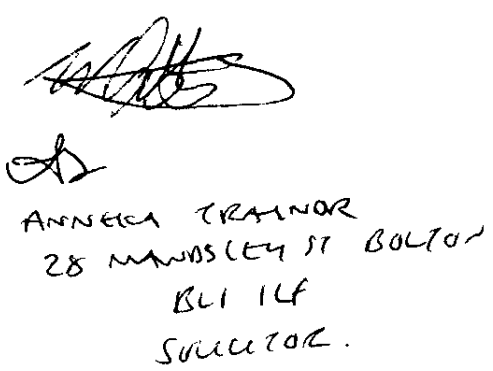 ANNEKA TRAINOR
28 MAWDSLEY ST BOLTON
BL1 1LF
SOLICITOR.